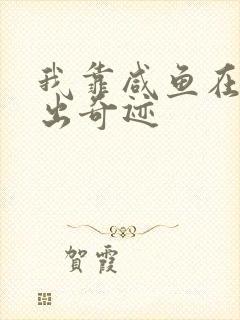 我靠咸鱼在
出奇迹
賀霞